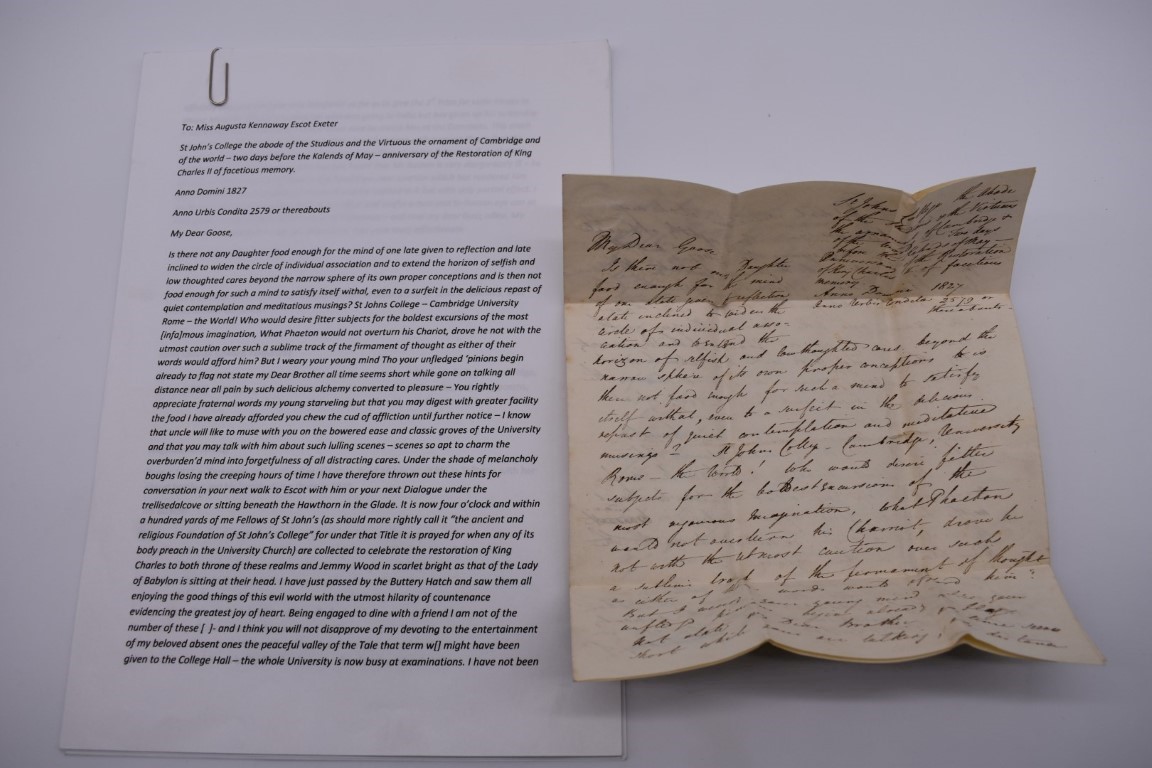 To: Miss Augusta Kennaway Escot Exeter
St John's College the abode of the Studious and the Virtuous the ornament of Cambridge and
of the world – two days before the Kalends of May – anniversary of the Restoration of King
Charles II of facetious memory.
Anno Domini 1827
Anno Urbis Condita 2579 or thereabouts
My Dear Goose,
Is there not any Daughter food enough for the mind of one late given to reflection and late
inclined to widen the circle of individual association and to extend the horizon of selfish and
low thoughted cares beyond the narrow sphere of its own proper conceptions and is then not
food enough for such a mind to satisfy itself withal, even to a surfeit in the delicious repast of
quiet contemplation and meditatious musings? St Johns College – Cambridge University
Rome – the World! Who would desire fitter subjects for the boldest excursions of the most
[info]mous imagination, What Phaeton would not overturn his Chariot, drove he not with the
utmost caution over such a sublime track of the firmament of thought as either of their
words would afford him? But I weary your young mind Tho your unfledged 'pinions begin
already to flag not state my Dear Brother all time seems short while gone on talking all
distance near all pain by such delicious alchemy converted to pleasure – You rightly
appreciate fraternal words my young starveling but that you may digest with greater facility
the food I have already afforded you chew the cud of affliction until further notice – I know
that uncle will like to muse with you on the bowered ease and classic groves of the University
and that you may talk with him about such lulling scenes – scenes so apt to charm the
overburden'd mind into forgetfulness of all distracting cares. Under the shade of melancholy
boughs losing the creeping hours of time I have therefore thrown out these hints for
conversation in your next walk to Escot with him or your next Dialogue under the
trellisedalcove or sitting beneath the Hawthorn in the Glade. It is now four o'clock and within
a hundred yards of me Fellows of St John's (as should more rightly call it "the ancient and
religious Foundation of St John's College" for under that Title it is prayed for when any of its
body preach in the University Church) are collected to celebrate the restoration of King
Charles to both throne of these realms and Jemmy Wood in scarlet bright as that of the Lady
of Babylon is sitting at their head. I have just passed by the Buttery Hatch and saw them all
enjoying the good things of this evil world with the utmost hilarity of countenance
evidencing the greatest joy of heart. Being engaged to dine with a friend I am not of the
number of these [ ]- and I think you will not disapprove of my devoting to the entertainment
of my beloved absent ones the peaceful valley of the Tale that term w[] might have been
given to the College Hall – the whole University is now busy at examinations. I have not been
St Johns the Abode
of the & the Virtuous
of Cambridge &
of the two days
of May
Restoration
of King Charles of facetious
memory
1827
Anno Urbis Condita 2579 or
thereabouts
My Dear Goose
Is there not any Daughter
food enough for the mind
of one reflection
alate inclined to widen the
circle of individual asso-
ciation and to extend the
horizon of selfish and lowthoughted cares beyond the
narrow sphere of its own proper conceptions & is
then not food enough for such a mind to satisfy
itself withal, even to a surfeit in the delicious
repast of quiet contemplation and meditatious
musings? St Johns College - Cambridge, University
Rome - the World! who would desire fitter
subjects for the boldest excursions of the
most imagination, what Phaeton
would not overturn his Chariot, drove he
not with the utmost caution over such
a sublime track of the firmament of thought
as either of words would afford him?
But I young mind
already
Dear Brother
short talking